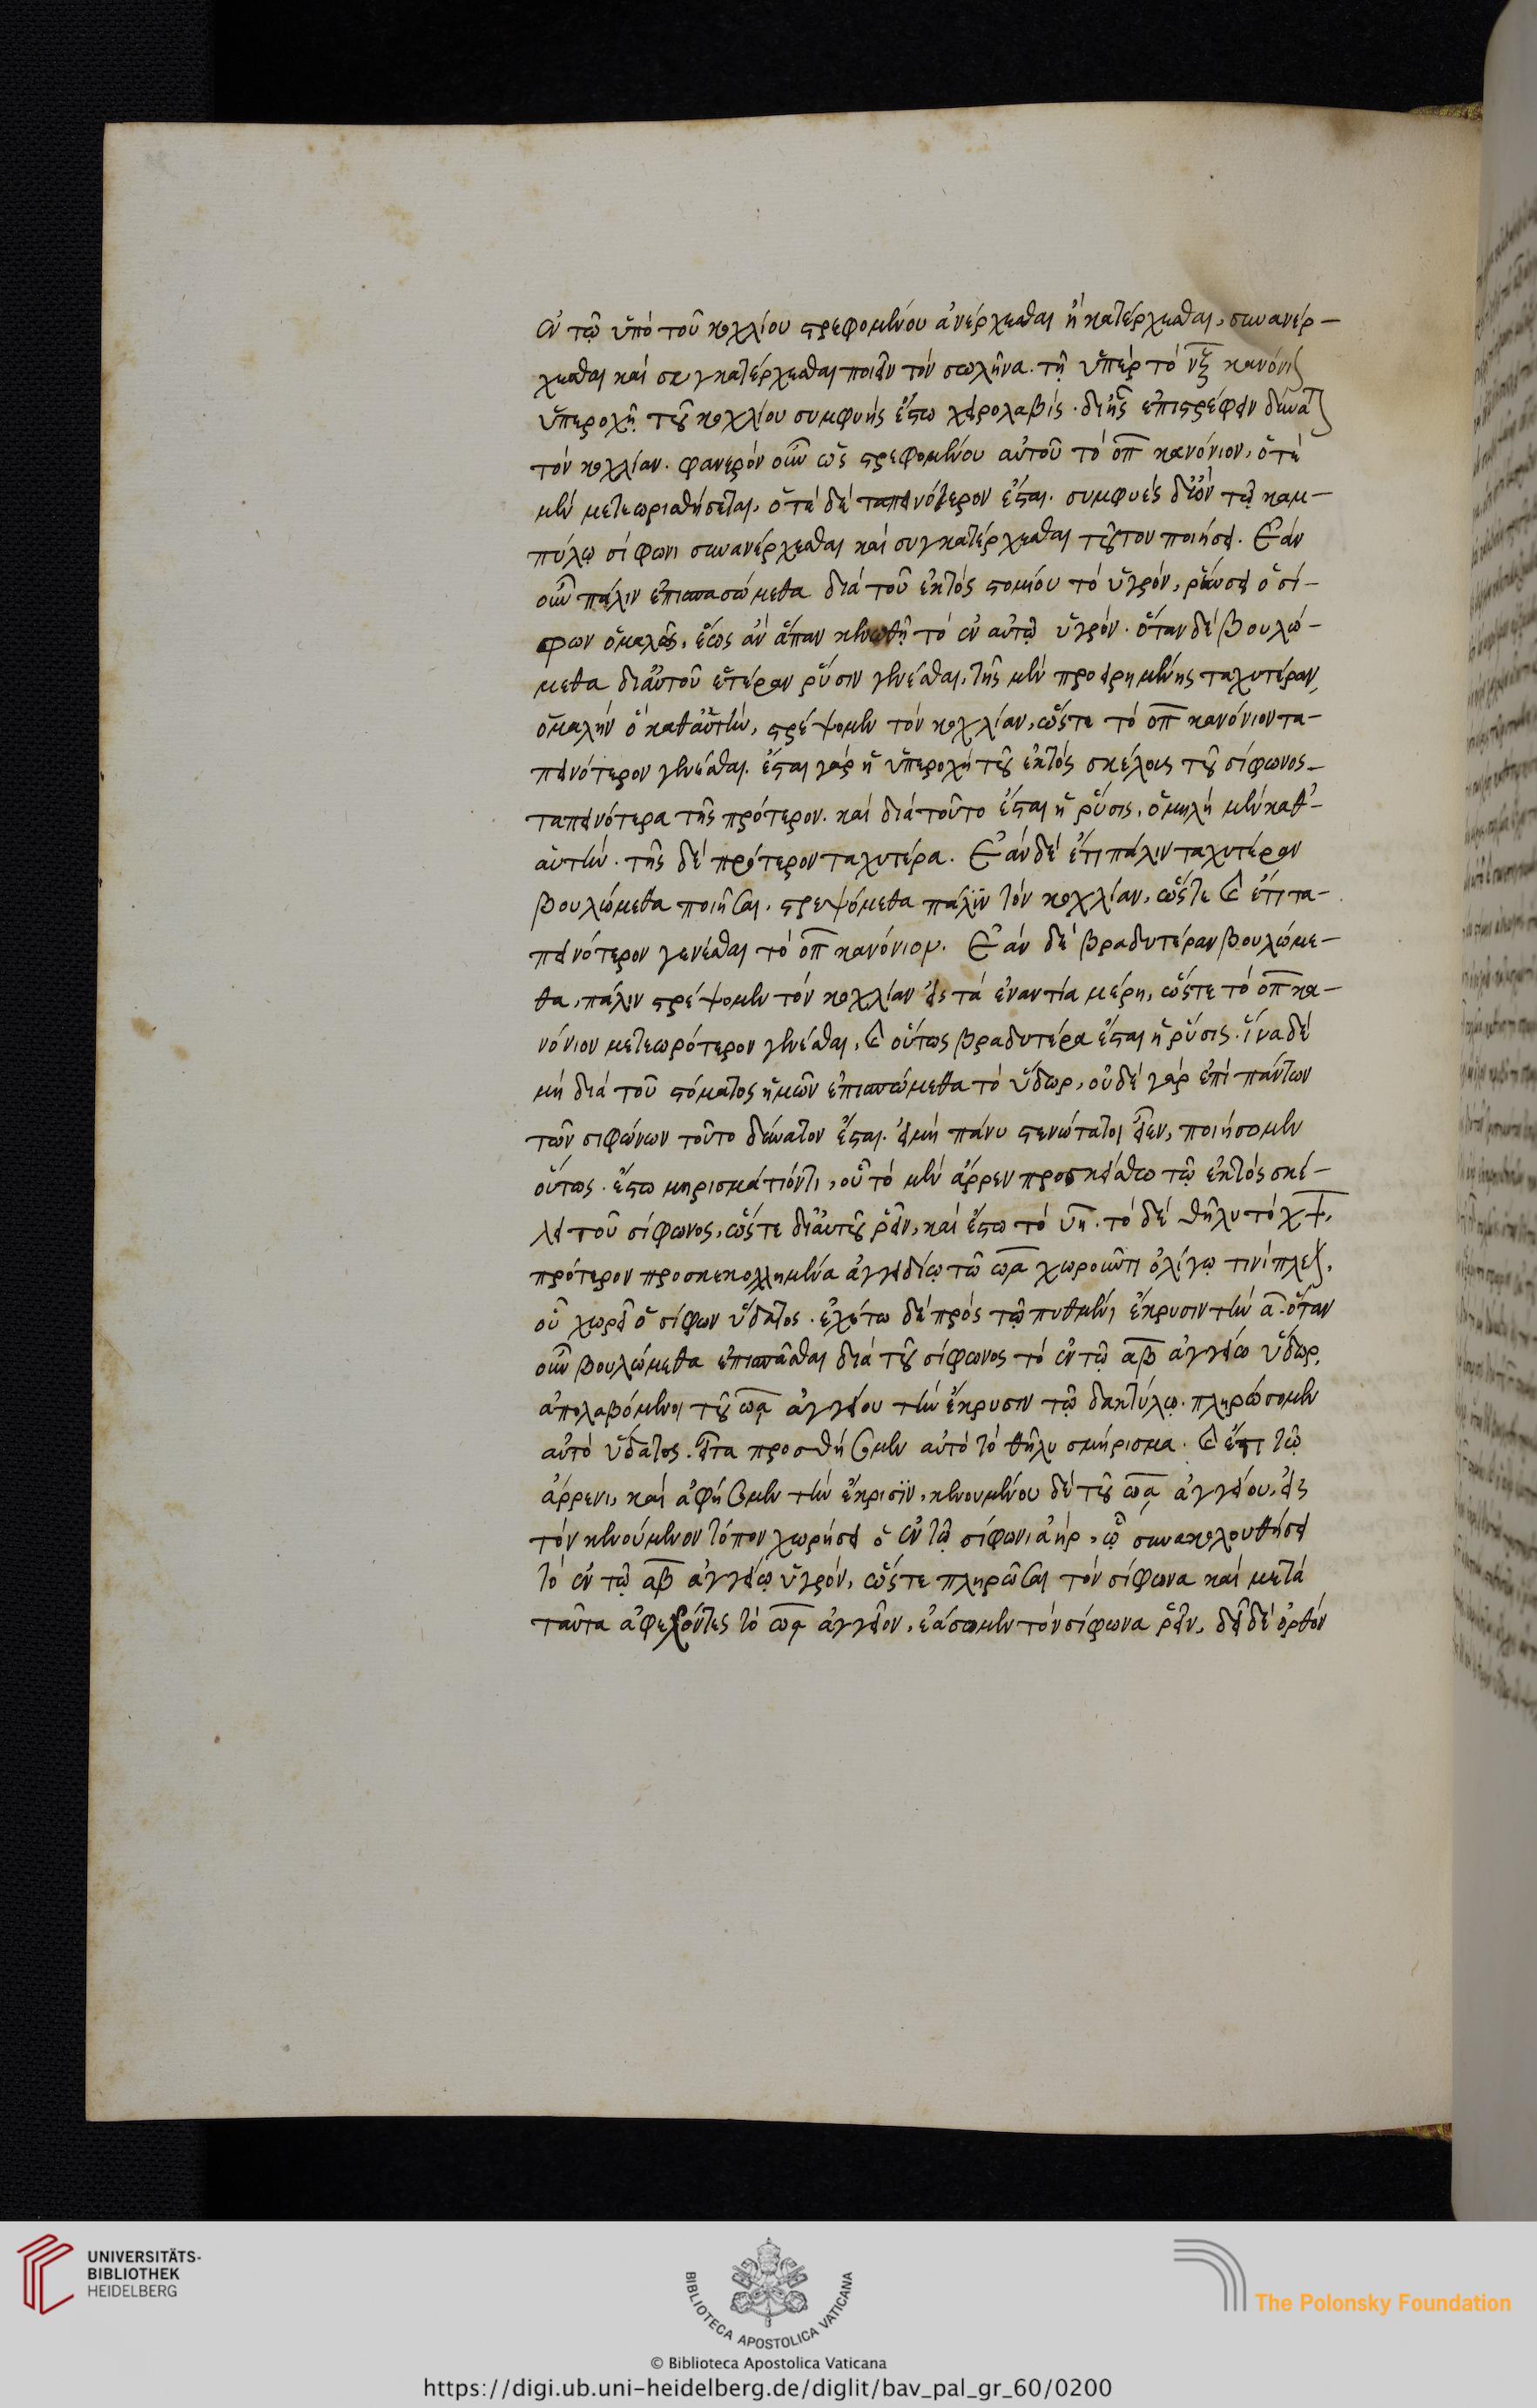 ἐν τῷ ὑπὸ τοῦ κοχλίου στρεφομένου ἀνέρχεσθαι ἢ κατέρχεσθαι, συνανέρ-
χεσθαι καὶ συγκατέρχεσθαι ποιεῖν τὸν σωλῆνα. τῇ ὑπὲρ τὸ νξ κανόνιον
ὑπεροχῇ τοῦ κοχλίου συμφυὴς ἔστω χειρολαβίς. δι' ἧς ἐπιστρέφειν δυνατὸν
τὸν κοχλίαν. φανερὸν οὖν ὡς στρεφομένου αὐτοῦ τὸ οπ κανόνιον, ὁτὲ
μὲν μετεωρισθήσεται, ὁτὲ δὲ ταπεινότερον ἔσται. συμφυὲς δὲ ὂν τῷ καμ-
πύλῳ σίφωνι συνανέρχεσθαι καὶ συγκατέρχεσθαι τοῦτον ποιήσει. Ἐὰν
οὖν πάλιν ἐπισπασώμεθα διὰ τοῦ ἐκτὸς στομίου τὸ ὑγρόν, ῥεύσει ὁ σί-
φων ὁμαλῶς, ἕως ἂν ἅπαν κενωθῇ τὸ ἐν αὐτῷ ὑγρόν. ὅταν δὲ βουλώ-
μεθα δι' αὐτοῦ ἑτέραν ῥύσιν γενέσθαι, τῆς μὲν προειρημένης ταχυτέραν,
ὁμαλὴν δὲ καθ' αὑτήν, στρέψομεν τὸν κοχλίαν, ὥστε τὸ οπ κανόνιον τα-
πεινότερον γενέσθαι. ἔσται γὰρ ἡ ὑπεροχὴ τοῦ ἐκτὸς σκέλους τοῦ σίφωνος
ταπεινότερα τῆς πρότερον. καὶ διὰ τοῦτο ἔσται ἡ ῥύσις, ὁμηλὴ μὲν καθ'
αὑτήν. τῆς δὲ πρότερον ταχυτέρα. Ἐὰν δὲ ἔτι πάλιν ταχυτέραν
βουλώμεθα ποιῆσαι, στρεψόμεθα πάλιν τὸν κοχλίαν, ὥστε καὶ ἔτι τα-
πεινότερον γενέσθαι τὸ οπ κανόνιον. Ἐὰν δὲ βραδυτέραν βουλώμε-
θα, πάλιν στρέψομεν τὸν κοχλίαν εἰς τὰ ἐναντία μέρη, ὥστε τὸ οπ κα-
νόνιον μετεωρότερον γενέσθαι, καὶ οὕτως βραδυτέρα ἔσται ἡ ῥύσις. ἵνα δὲ
μὴ διὰ τοῦ στόματος ἡμῶν ἐπισπώμεθα τὸ ὕδωρ, οὐδὲ γὰρ ἐπὶ πάντων
τῶν σιφώνων τοῦτο δυνατὸν ἔσται. εἰ μὴ πάνυ στενώτατοι εἶεν, ποιήσομεν
οὕτως. ἔστω μηρισμάτιόν τι, οὗ τὸ μὲν ἄρρεν προσκείσθω τῷ ἐκτὸς σκέ-
λει τοῦ σίφωνος, ὥστε δι' αὐτοῦ ῥεῖν, καὶ ἔστω τὸ υη. τὸ δὲ θῆλυ τὸ χψ,
πρότερον προσκεκολλημένα ἀγγειδίῳ τῷ ωα χωροῦντι ὀλίγῳ τινὶ πλεῖον,
οὗ χωρεῖ ὁ σίφων ὕδατος. ἐχέτω δὲ πρὸς τῷ πυθμένι ἔκρυσιν τὴν α. ὅταν
οὖν βουλώμεθα ἐπισπᾶσθαι διὰ τοῦ σίφωνος τὸ ἐν τῷ αβ ἀγγείῳ ὕδωρ,
ἀπολαβόμενοι τοῦ ωα ἀγγείου τὴν ἔκρυσιν τῷ δακτύλῳ. πληρώσομεν
αὐτὸ ὕδατος. εἶτα προσθήσομεν αὐτὸ τὸ θῆλυ σμήρισμα. καὶ ἔστι τῷ
ἄρρενι, καὶ ἀφήσομεν τὴν ἔκρισιν, κενουμένου δὲ τοῦ ωα ἀγγείου, εἰς
τὸν κενούμενον τόπον χωρήσει ὁ ἐν τῷ σίφωνι ἀήρ, ᾧ συνακολουθήσει
τὸ ἐν τῷ αβ ἀγγείῳ ὑγρόν, ὥστε πληρῶσαι τὸν σίφωνα καὶ μετὰ
ταῦτα ἀφελόντες τὸ ωα ἀγγεῖον, ἐάσωμεν τὸν σίφωνα ῥεῖν, δεῖ δὲ ὀρθὸν
UNIVERSITÄTS-
BIBLIOTHEK
HEIDELBERG
BIBLIOTECA APOSTOLICA VATICANA
The Polonsky Foundation
© Biblioteca Apostolica Vaticana
https://digi.ub.uni-heidelberg.de/diglit/bav_pal_gr_60/0200